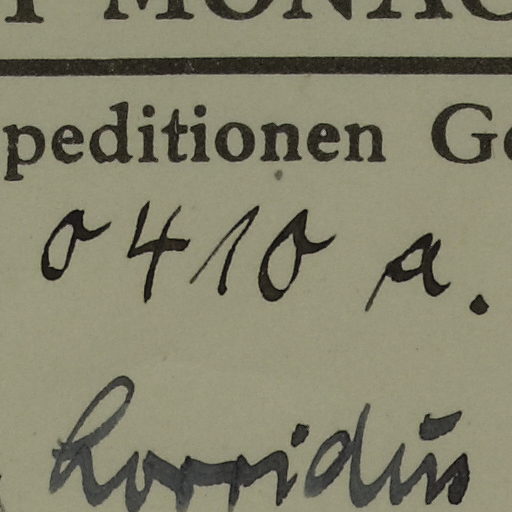 T MONAC
peditionen Ge
0410 a.
horridus